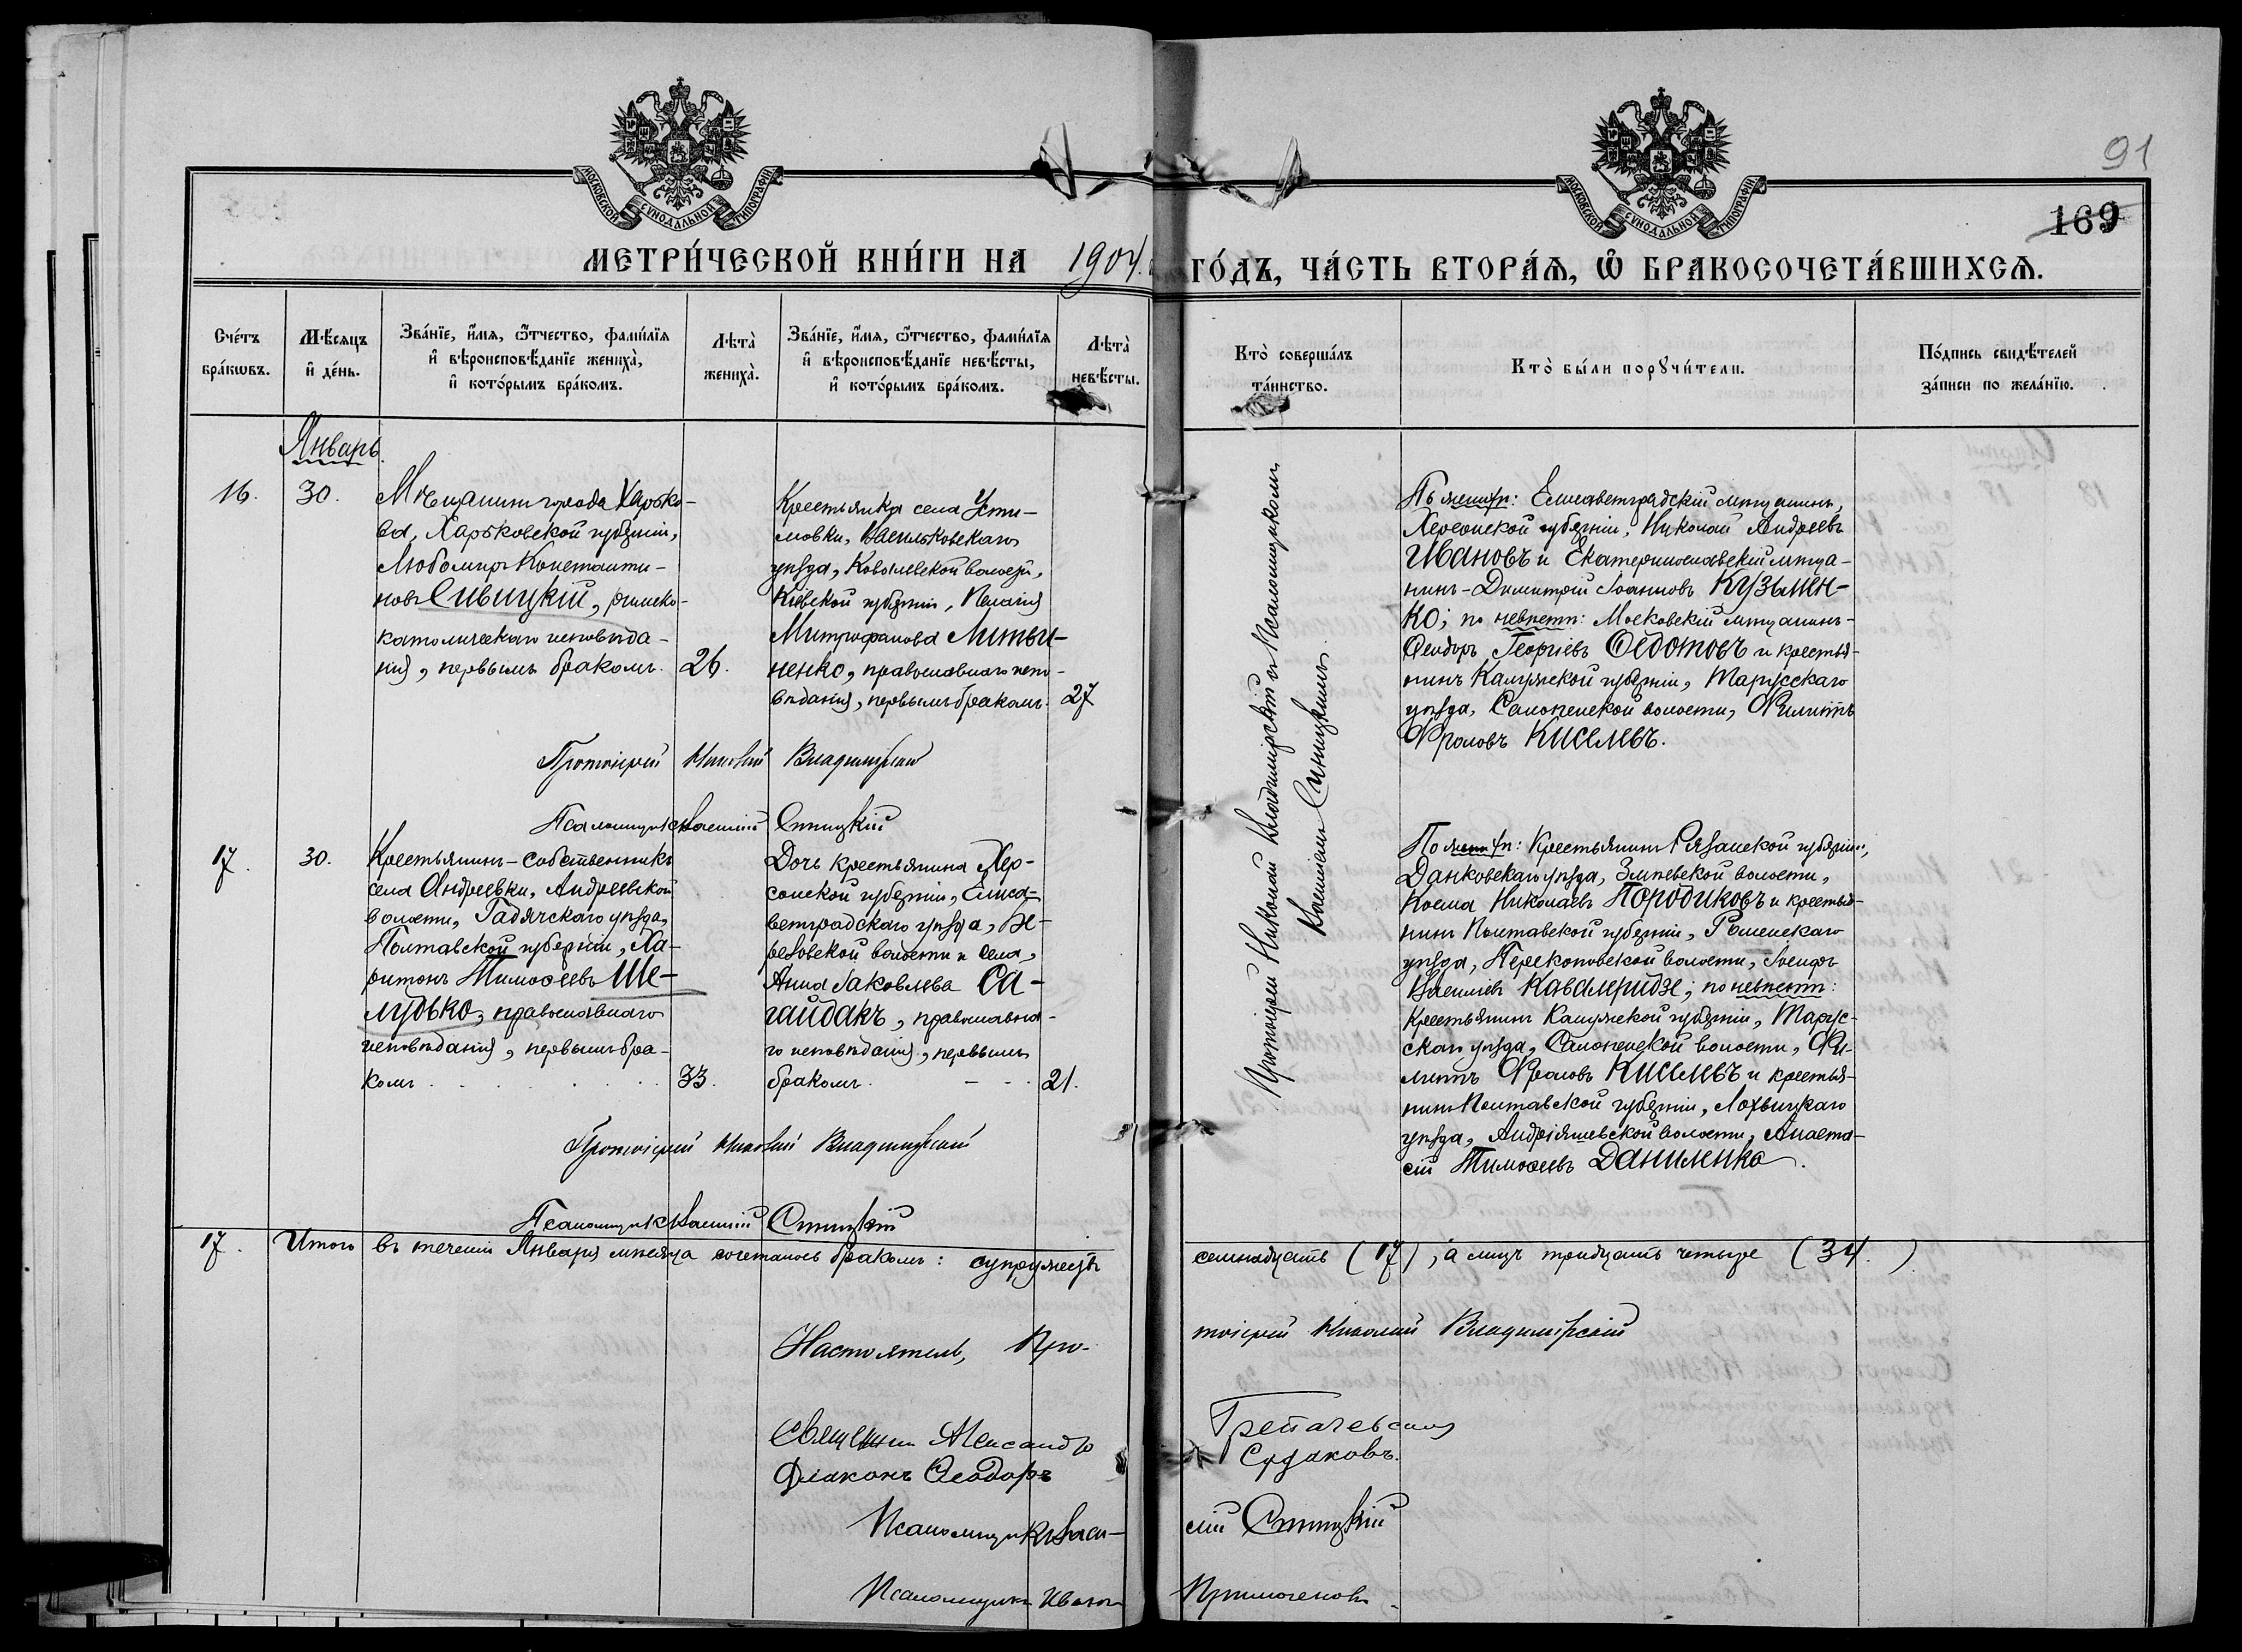 91
169
МОСКОВСКОЙ СѴНОДАЛЬНОЙ ТИПОГРАФІИ
МОСКОВСКОЙ СѴНОДАЛЬНОЙ ТИПОГРАФІИ
МЕТРИ́ЧЕСКОЙ КНИ́ГИ НА 1904. ГО́ДЪ, ЧА́СТЬ ВТОРА́Я, Ѽ БРАКОСОЧЕТА́ВШИХСЯ.
Сче́тъ
бра́кѡвъ.
Мѣ́сяцъ
и҆ де́нь.
Зва́нїе, и҆́мя, ѻ҆́тчество, фами́лїя
и҆ вѣроисповѣ́данїе жениха̀,
и҆ кото́рымъ бра́комъ.
Лѣта̀
жениха̀.
Зва́нїе, и҆́мя, ѻ҆́тчество, фами́лїя
и҆ вѣроисповѣ́данїе невѣ́сты,
и҆ кото́рымъ бра́комъ.
Лѣта̀
невѣ́сты.
Кто̀ соверша́лъ
та́инство.
Кто̀ бы́ли порꙋчи́тели.
По́дпись свидѣ́телей
за́писи по жела́нїю.
Январь.
16.
30.
Мѣщанинъ города Харько-
ва, Харьковской губерніи,
Любомиръ Константи-
новъ Сивицкій, римско-
католическаго исповѣда-
нія, первымъ бракомъ.
26.
Крестьянка села Усти-
мовки, Васильковскаго
уѣзда, Ковалевской волости,
Кіевской губерніи, Пелагія
Митрофанова Литви-
ненко, православнаго испо-
вѣданія, первымъ бракомъ.
27
Протоіерей Николай Владимірскій
Псаломщикъ Василій Синицкій
Протоіерей Николай Владимірскій съ Псаломщикомъ
Василіемъ Синицкимъ.
По женихѣ: Елисаветградскій мѣщанинъ,
Херсонской губерніи, Николай Андреевъ
Ивановъ и Екатеринославскій мѣща-
нинъ-Димитрій Іоанновъ Кузьмен-
ко; по невѣстѣ: Московскій мѣщанинъ-
Ѳеодоръ Георгіевъ Ѳедотовъ и крестья-
нинъ Калужской губерніи, Тарусскаго
уѣзда, Салопенской волости, Филиппъ
Фроловъ Киселевъ.
17.
30.
Крестьянинъ-собственникъ
села Андреевки, Андреевской
волости, Гадячскаго уѣзда,
Полтавской губерніи, Ха-
ритонъ Тимоѳеевъ Ше-
лудько, православнаго
исповѣданія, первымъ бра-
комъ
33.
Дочь крестьянина Хер-
сонской губерніи, Елиса-
ветградскаго уѣзда, Бе-
резовской волости и села,
Анна Іаковлева Са-
гайдакъ, православна-
го исповѣданія, первымъ
бракомъ.
21.
Протоіерей Николай Владимірскій
Псаломщикъ Василій Синицкій
По женихѣ: Крестьянинъ Рязанской губерніи,
Данковскаго уѣзда, Змѣевской волости,
Косма Николаевъ Породиковъ и крестья-
нинъ Полтавской губерніи, Роменскаго
уѣзда, Перекоповской волости, Іосифъ
Василіевъ Кавалеридзе; по невѣстѣ:
Крестьянинъ Калужской губерніи, Тарус-
скаго уѣзда, Салопенской волости, Фи-
липпъ Фроловъ Киселевъ и крестья-
нинъ Полтавской губерніи, Лохвицкаго
уѣзда, Андріяшевской волости, Анаста-
сій Тимоѳеевъ Даниленко.
17. Итого въ теченіи Января мѣсяца сочеталось бракомъ: супружествъ семнадцать (17), а лицъ тридцать четыре (34.)
Настоятель, Протоіерей Николай Владимірскій
Священникъ Александръ
Діаконъ Ѳеодоръ Судаковъ.
Псаломщикъ Василій Синицкій
Псаломщикъ Иванъ